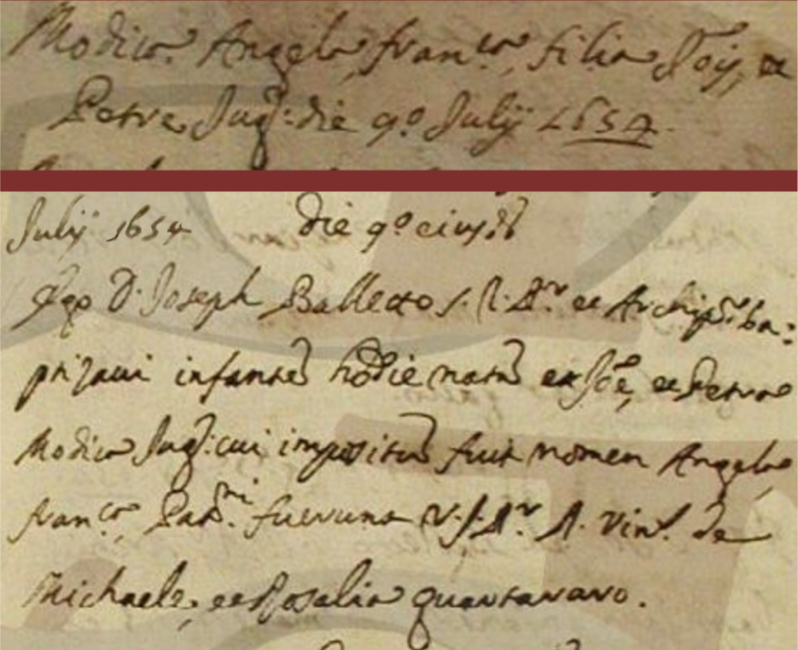 Modica Angela fran:ca filia Jois, et
Petræ Jug: die 9º Julij 1654.
Julij 1654 die 9º eiusd
Ego D. Joseph Balletto et Archip.r ba:
ptizaui infante hodie nata ex Jõe, et Petra
Modica Jug: cui impositu fuit nomen Angela
fran:ca Pat.ni fuerunt V.J.D.r D. Vin. de
Michaele, et Rosalia quartararo.